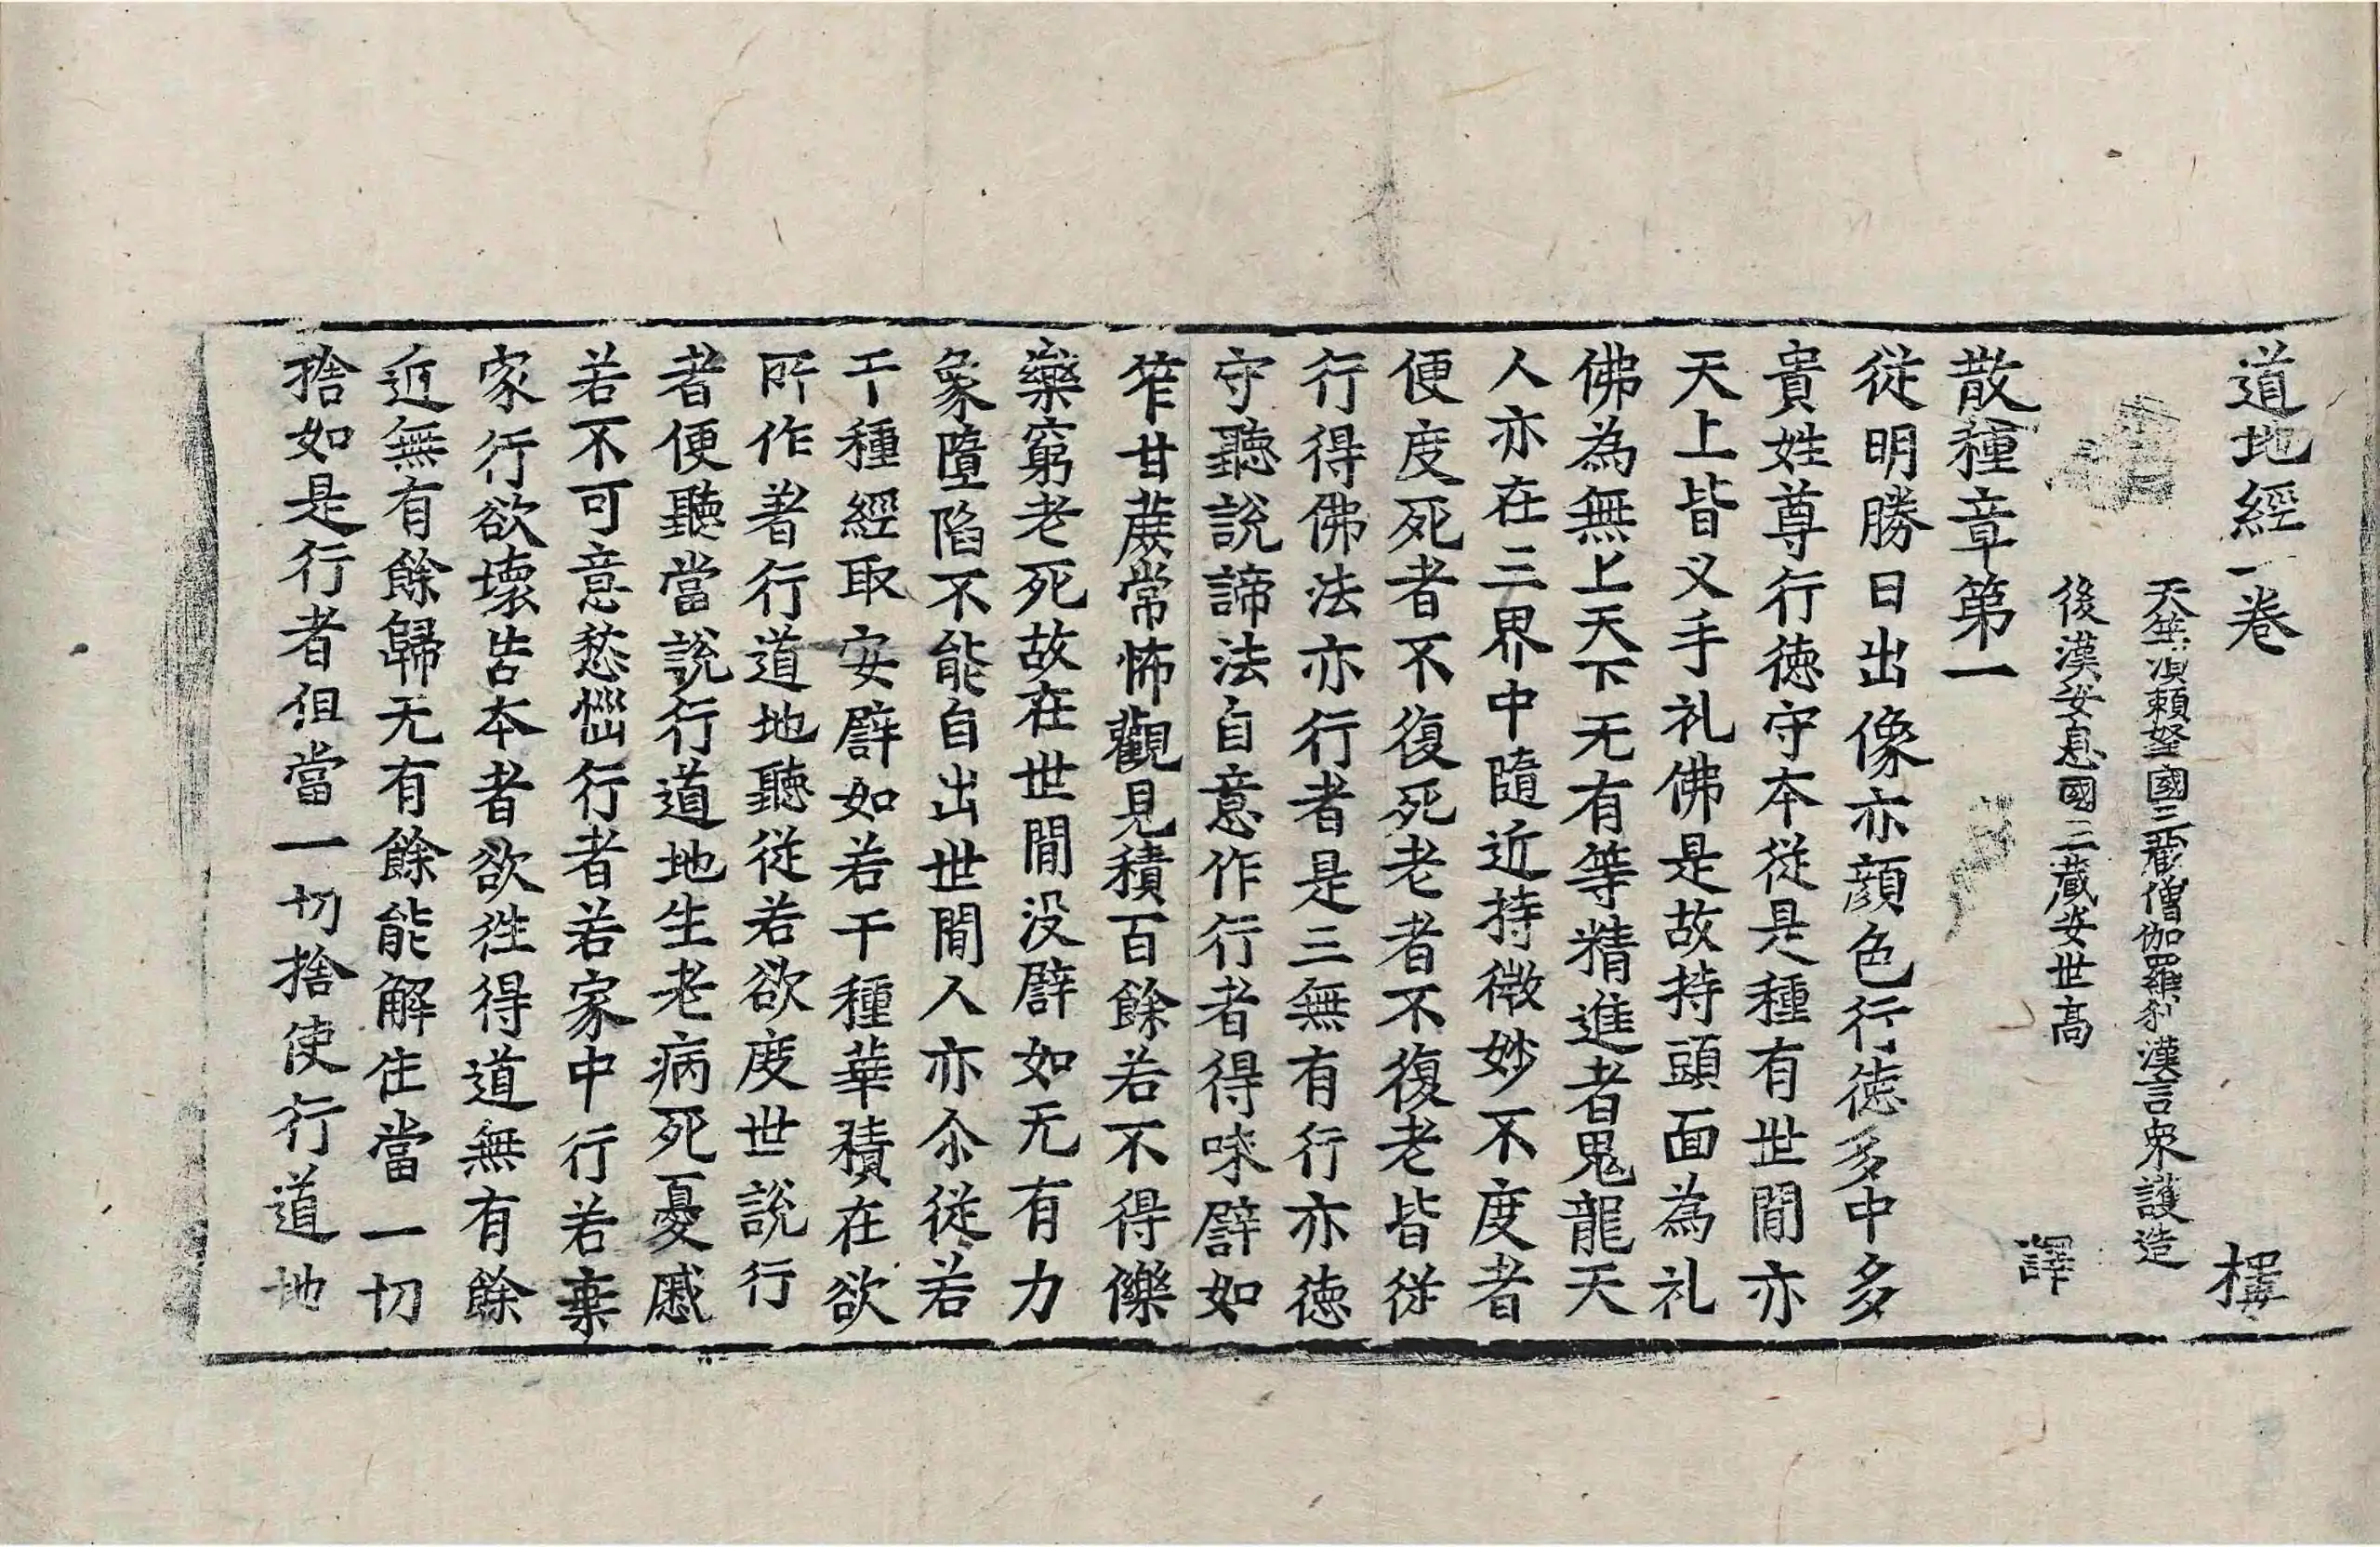 道地經一卷 樓
天竺湏賴拏國三藏僧伽羅剎漢言衆護造
後漢安息國三藏安世高 譯
散種章第一
從明勝日出像亦顔色行德多中多
貴姓尊行德守本從是種有世閒亦
天上皆叉手礼佛是故持頭面為礼
佛為無上天下无有等精進者鬼龍天
人亦在三界中隨近持微妙不度者
便度死者不復死老者不復老皆從
行得佛法亦行者是三無有行亦德
守聽說諦法自意作行者得味譬如
笮甘蔗常怖觀見積百餘若不得傑
藥窮老死故在世閒没譬如无有力
象墮陷不能自出世閒人亦尒從若
干種經取安譬如若干種華積在欲
所作著行道地聽從若欲度世說行
者便聽當說行道地生老病死憂慼
若不可意愁惱行者若家中行若棄
家行欲壞苦本者欲徃得道無有餘
近無有餘歸无有餘能解住當一切
捨如是行者但當一切捨使行道地